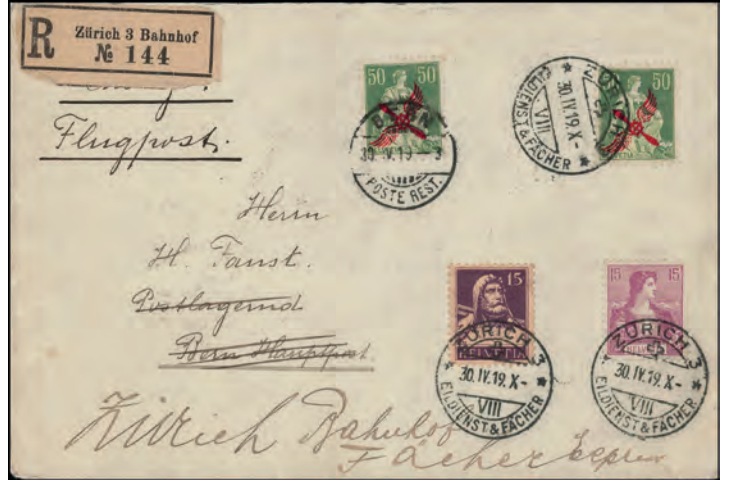 R Zürich 3 Bahnhof
№ 144
Flugpost.
50 50
50
BERN
30. IV. 19 - 3
POSTE REST.
ZÜRICH 3
30.IV.19.X-
VIII
EILDIENST & FÄCHER
Herrn
H. Faust.
Postlagernd
Bern Hauptpost.
15
HELVETIA
15 15
ZÜRICH 3
30.IV.19.X-
VIII
EILDIENST & FÄCHER
ZÜRICH 3
30.IV.19.X-
VIII
EILDIENST & FÄCHER
Zürich Bahnhof
Fächer